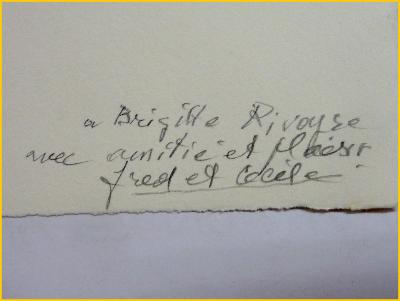 a Brigitte Rivoyre
avec amitié et plaisir
fred et Cécile